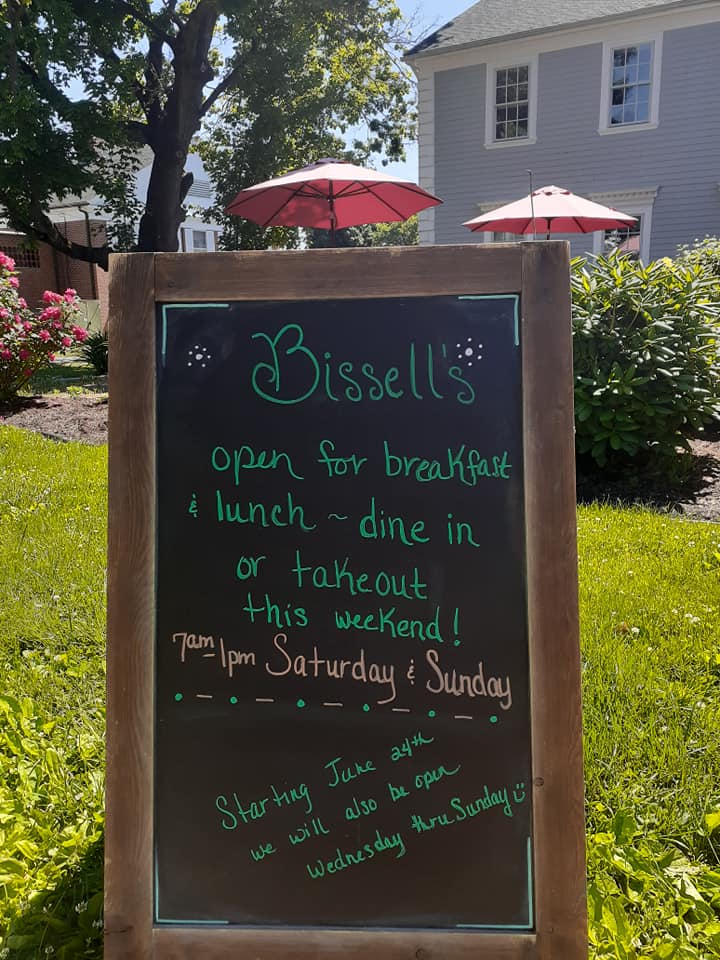 Bissell's
open for breakfast
& lunch ~ dine in
or takeout
this weekend!
7am-1pm Saturday & Sunday
Starting June 24th
we will also be open
Wednesday thru Sunday